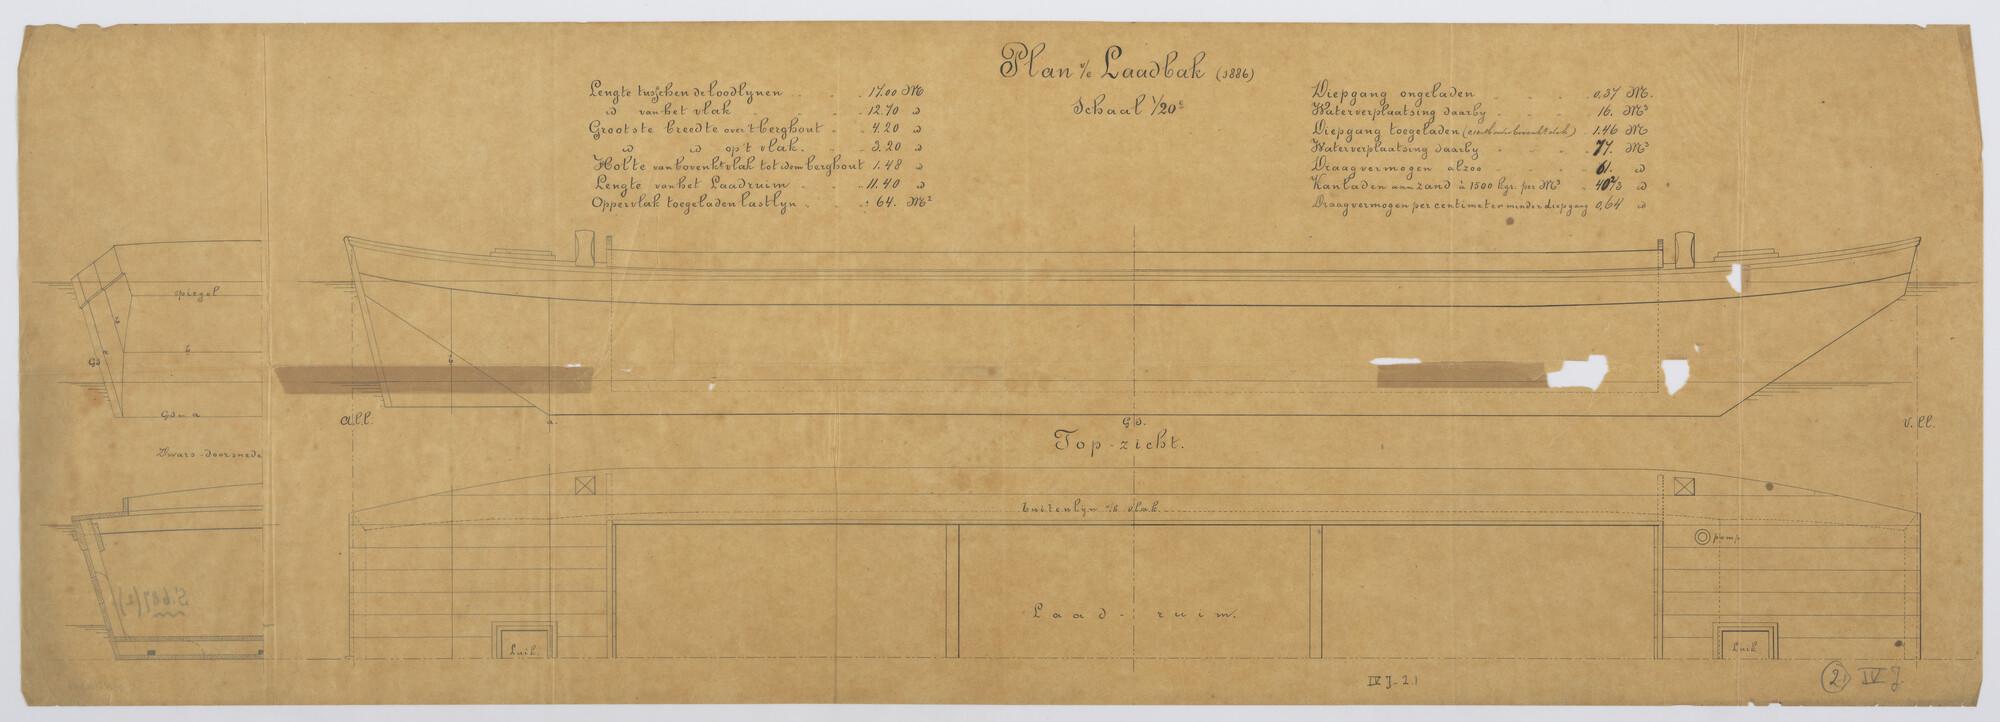 Plan v/e Laadbak (1886)
Schaal 1/20e
Lengte tusschen de loodlynen 17.00 M
id van het vlak 12.70 id
Grootste breedte over 't berghout 4.20 id
id id op 't vlak. 3.20 id
Holte van bovenkt vlak tot idem berghout 1.48 id
Lengte van het Laadruim 11.40 id
Oppervlak toegeladen lastlyn 64. M²
Diepgang ongeladen 0,37 M.
Waterverplaatsing daarby 16. M³
Diepgang toegeladen 1.46 M
Waterverplaatsing daarby 77. M³
Draagvermogen alzoo 61. id
Kan laden aan zand à 1500 kgr. per M³ 40 2/3 id
Draagvermogen per centimeter minder diepgang 0,64 id
spiegel
b
b
Gd a
Gd en a
b
A.l.l.
a.
Gd.
V.ll.
Top-zicht.
Dwars-doorsnede
buitenlyn v/h vlak
pomp
Laad-ruim.
Luik
Luik
IV J-2.1
2 IV J.